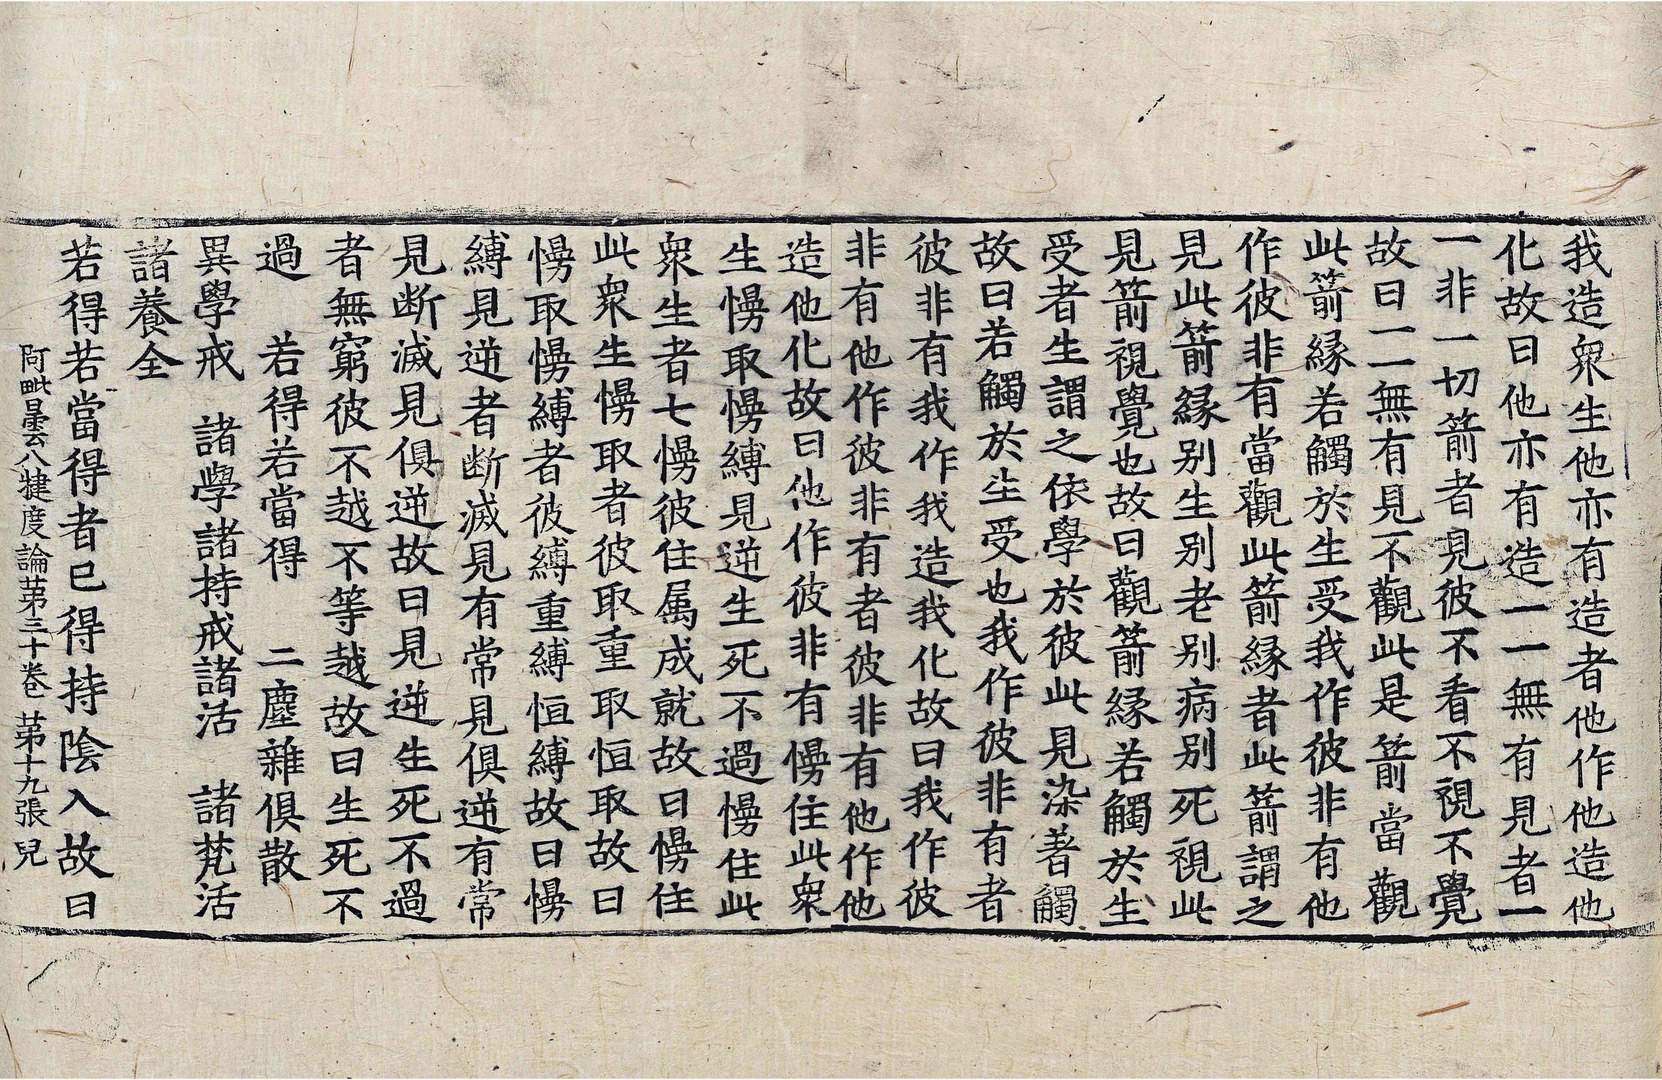 我造衆生他亦有造者他作他造他
化故曰他亦有造一一無有見者一
一非一切箭者見彼不看不視不覺
故曰一一無有見不觀此是箭當觀
此箭縁若觸於生受我作彼非有他
作彼非有當觀此箭縁者此箭謂之
見此箭縁别生别老别病别死視此
見箭視覺也故曰觀箭縁若觸於生
受者生謂之依學於彼此見染著觸
故曰若觸於生受也我作彼非有者
彼非有我作我造我化故曰我作彼
非有他作彼非有者彼非有他作他
造他化故曰他作彼非有慢住此衆
生慢取慢縛見逆生死不過慢住此
衆生者七慢彼住属成就故曰慢住
此衆生慢取者彼取重取恒取故曰
慢取慢縛者彼縛重縛恒縛故曰慢
縛見逆者断滅見有常見俱逆有常
見断滅見俱逆故曰見逆生死不過
者無窮彼不越不等越故曰生死不
過　若得若當得　二塵雜俱散
異學戒　諸學諸持戒諸活　諸梵活
諸養全
若得若當得者已得持陰入故曰
阿毗曇八犍度論苐三十卷　苐十九張　兒